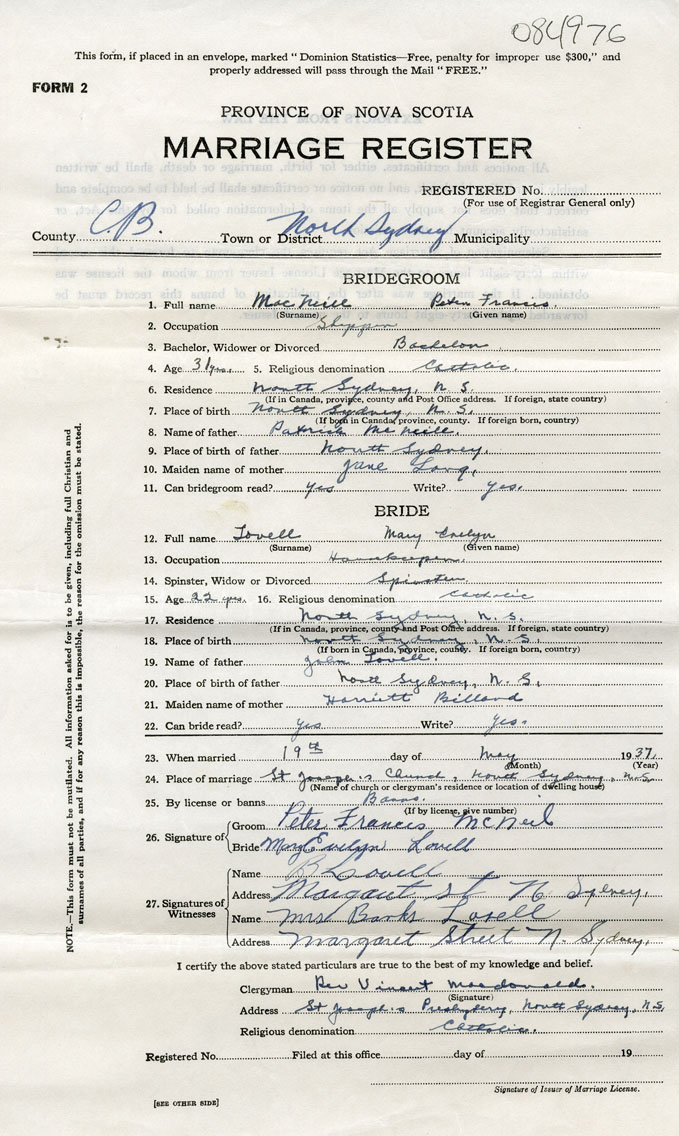 084976
This form, if placed in an envelope, marked "Dominion Statistics—Free, penalty for improper use $300," and
properly addressed will pass through the Mail "FREE."
FORM 2
PROVINCE OF NOVA SCOTIA
MARRIAGE REGISTER
REGISTERED No.
(For use of Registrar General only)
County C.B. Town or District North Sydney Municipality
BRIDEGROOM
1. Full name MacNeill Peter Francis
(Surname) (Given name)
2. Occupation
3. Bachelor, Widower or Divorced Bachelor
4. Age 31 yrs. 5. Religious denomination Catholic.
6. Residence North Sydney, N. S.
(If in Canada, province, county and Post Office address. If foreign, state country)
7. Place of birth North Sydney, N. S.
(If born in Canada, province, county. If foreign born, country)
8. Name of father Patrick McNeill.
9. Place of birth of father North Sydney.
10. Maiden name of mother Jane Long,
11. Can bridegroom read? Yes Write? Yes.
BRIDE
12. Full name Lovell Mary Evelyn
(Surname) (Given name)
13. Occupation Housekeeper.
14. Spinster, Widow or Divorced Spinster
15. Age 22 yrs. 16. Religious denomination Catholic
17. Residence North Sydney, N. S.
(If in Canada, province, county and Post Office address. If foreign, state country)
18. Place of birth North Sydney, N. S.
(If born in Canada, province, county. If foreign born, country)
19. Name of father John Lovell.
20. Place of birth of father North Sydney, N. S.
21. Maiden name of mother Harriett Billard
22. Can bride read? Yes Write? Yes.
23. When married 19th day of May 1937.
(Month) (Year)
24. Place of marriage St Joseph's Church, North Sydney, N.S.
(Name of church or clergyman's residence or location of dwelling house)
25. By license or banns Banns.
(If by license, give number)
26. Signature of Groom Peter Francis McNeil
Bride Mary Evelyn Lovell
27. Signatures of Witnesses
Name B Lovell
Address Margaret St N. Sydney,
Name Mrs Banks Lovell
Address Margaret Street N. Sydney,
I certify the above stated particulars are true to the best of my knowledge and belief.
Clergyman Rev Vincent Macdonald.
(Signature)
Address St Joseph's Presbytery, North Sydney, N.S.
Religious denomination Catholic.
Registered No. Filed at this office day of 19
Signature of Issuer of Marriage License.
[SEE OTHER SIDE]
NOTE.—This form must not be mutilated. All information asked for is to be given, including full Christian and
surnames of all parties, and if for any reason this is impossible, the reason for the omission must be stated.